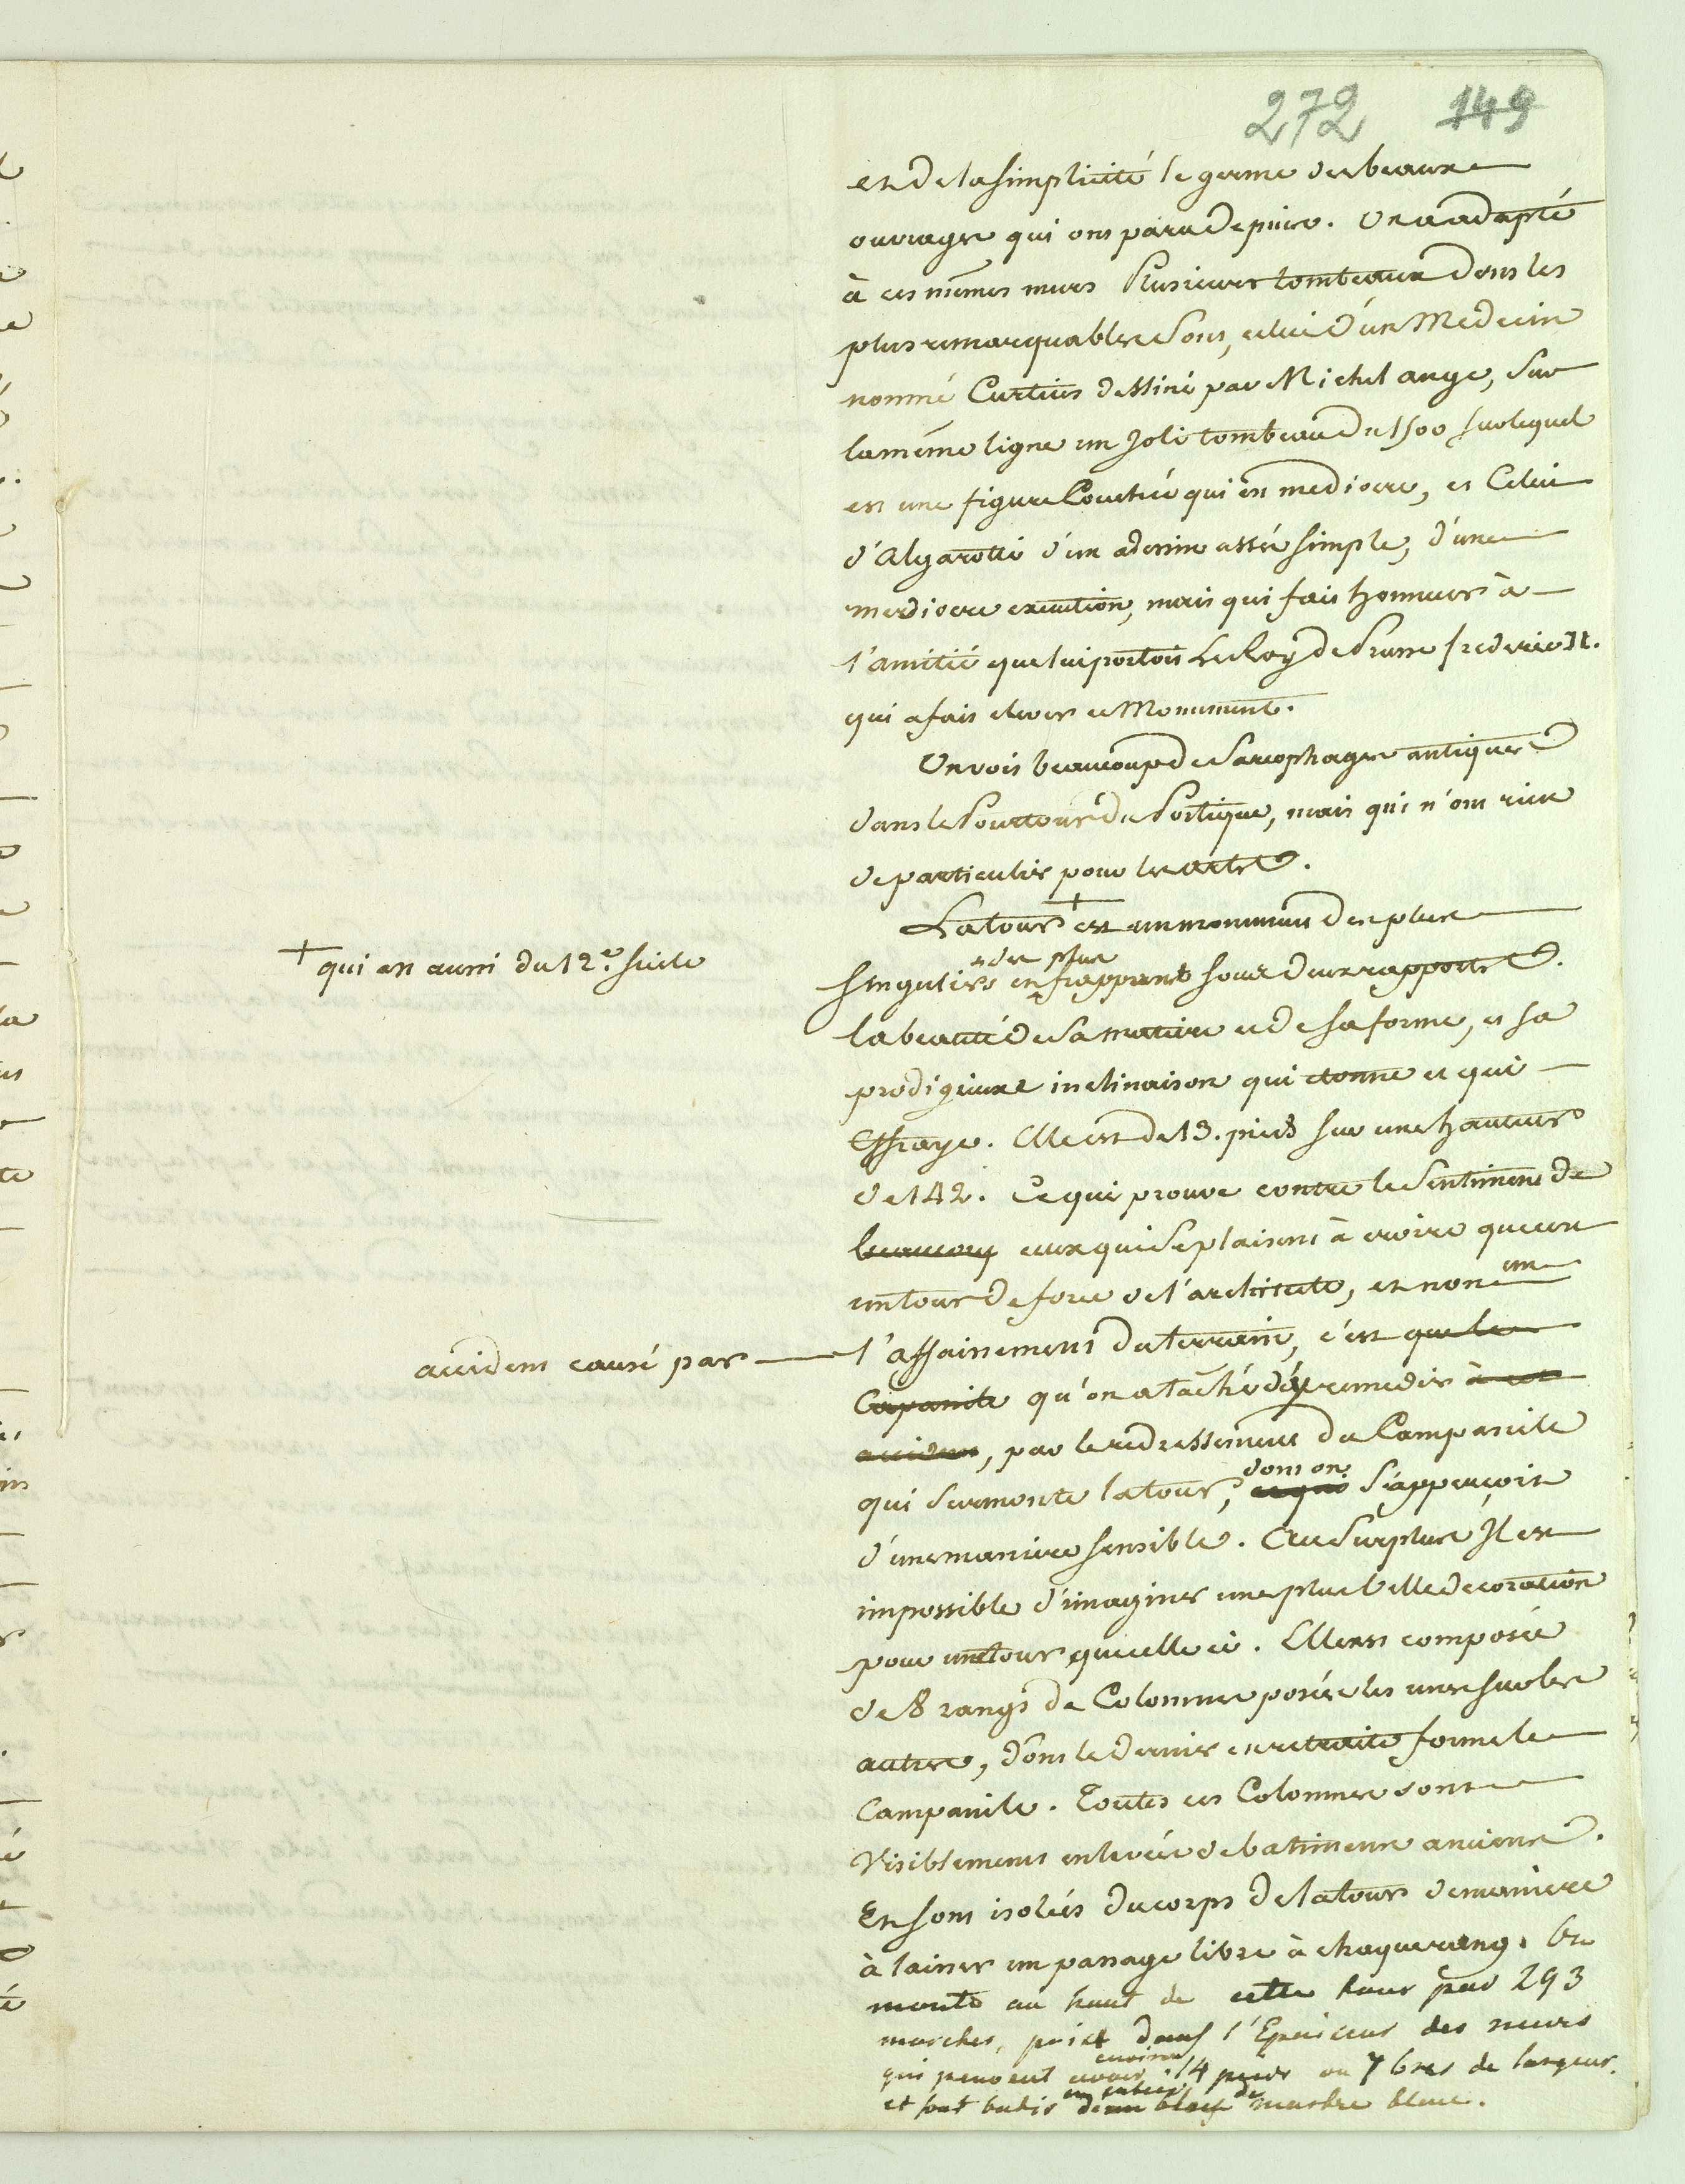 272 149
et de la simplicité le germe des beaux
ouvrages qui ont paru depuis. On a adapté
à ces mêmes murs Plusieurs tombeaux dont les
plus remarquables sont, celui d'un Medecin
nommé Curtius dessiné par Michel ange, Sur
la même ligne un Joli tombeau de 1500 sur lequel
est une figure Couchée qui est mediocre, et Celui
d'Algarotti d'un dessin assés simple, d'une
mediocre execution, mais qui fait honneur à
l'amitié que lui portoit Le Roy de Prusse frederic II.
qui a fait elever ce Monument.
On voit beaucoup de Sarcophages antiques
dans le Pourtour du Portique, mais qui n'ont rien
de particulier pour les arts.
La tour + est un monument des plus
+ qui est aussi du 12e. siecle
singuliers et des plus frappant sous deux rapports.
la beauté de sa matiere et de sa forme, et sa
prodigieuse inclinaison qui etonne et qui
Effraye. Elle est de 13. pieds sur une hauteur
de 142. Ce qui prouve contre le Sentiment de
beaucoup ceux qui se plaisent à croire que c'est
un tour de force de l'architecte, et non un
accident causé par l'affaissement du terrein, c'est que le
Capanile qu'on a tâché d'y remedier à cet
accident, par le redressement du Campanile
qui surmonte la tour, ce qui dont on s'apperçoit
d'une maniere sensible. Au Surplus Il est
impossible d'imaginer une plus belle decoration
pour une tour que celle ci. Elle est composée
de 8 rangs de Colonnes posées les unes sur les
autres, dont le dernier en retraite forme le
Campanile. Toutes ces Colonnes sont
Visiblement enlevées de batimens anciens.
Et sont isolées du corps de la tour de maniere
à laisser un passage libre à chaque rang. On
monte au haut de cette tour par 293
marches, prises dans l'Epaisseur des murs
qui peuvent avoir environ 14 pieds ou 7 bras de largeur.
et sont batis en entier de marbre blanc.